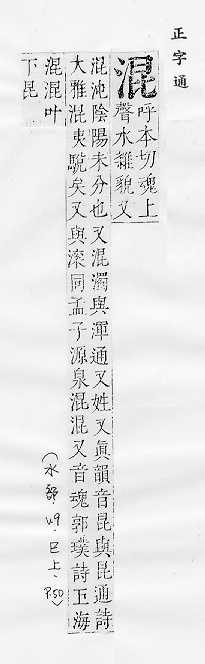 正字通
混
呼本切魂上
聲水雜貌又
混沌陰陽未分也又混濁與渾通又姓又眞韻音昆與昆通詩
大雅混夷駾矣又與滚同孟子源泉混混又音魂郭璞詩玉海
混混叶
下昆
(水部.49巳上.P50)